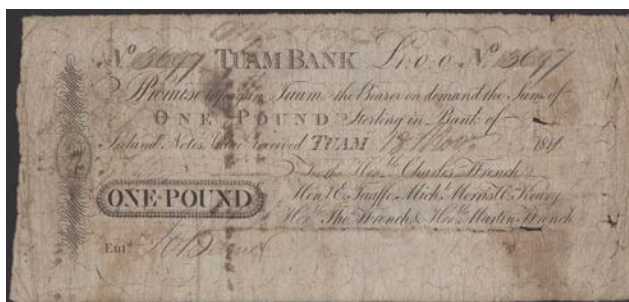 No 13697 TUAM BANK £1.0.0 No 13697
I Promise to pay in Tuam the Bearer on demand the Sum of
ONE POUND Sterling in Bank of
Ireland Notes Value received TUAM Novr 181
For the Honble Charles Ffrench
ONE-POUND Henry E. Taaffe Michl Morris C. Keary
Honble Thos Ffrench & Honble Martin Ffrench
Entd